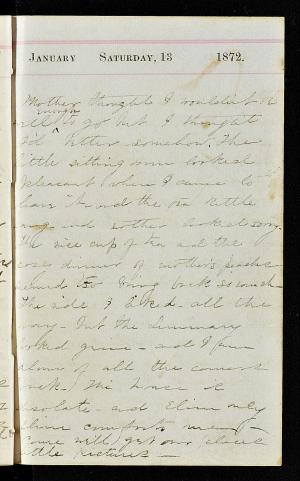 January Saturday, 13 1872.
Mother thought I wouldn't be
well enough to go but I thought
I'd better somehow. The
little sitting room looked
pleasant when I came to
leave it and the tea kettle
and mother looked sorry.
The nice cup of tea and the
dinner of mother's
behind to bring back so much
The ride I liked all the
way - but the Seminary
looked grim - and I am
alone of all the
The house is
desolate - and Eliza only
comforts me -
Come will get our places
little pictures -